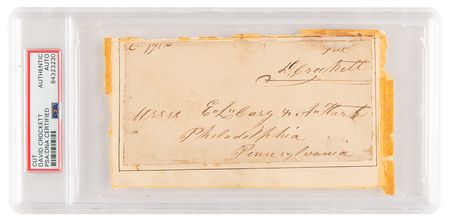 CUT
DAVID CROCKETT
PSA/DNA CERTIFIED
AUTHENTIC
AUTO
84323230
PSA
Free
D. Crockett
Messrs E. L. Cary & A. Hart
Philadelphia
Pennsylvania